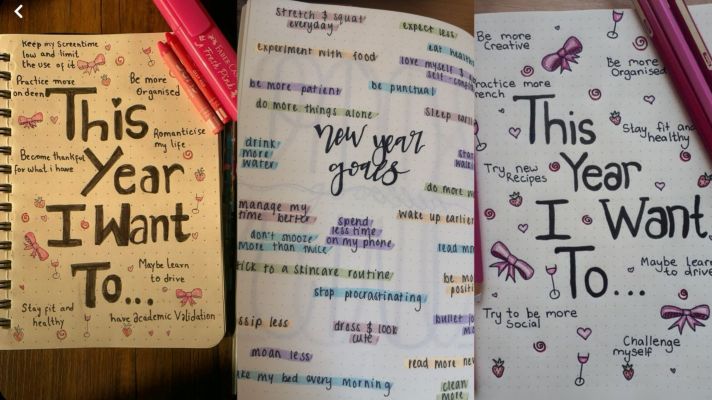 Keep my screentime
low and limit
the use of it
Practice more
on deen
Be more
Organised
This
Year
I Want
To...
Romanticise
my life
Become thankful
for what i have
Maybe learn
to drive
Stay fit and
healthy
have academic Validation
FABER-CASTELL
stretch & squat
everyday
expect less
experiment with food
eat
love myself &
self
be more patient
be punctual
do more things alone
sleep
new year
goals
drink
more
water
do more
manage my
time better
spend
less time
on my phone
wake up earlier
don't snooze
more than twice
read
to a skincare routine
be
stop procrastinating
less
dress & look
cute
bullet
moan less
read more
my bed every morning
clean
more
Be more
Creative
Be more
Organised
more
This
Year
I Want
To...
Stay fit and
healthy
Try new
Recipes
Maybe learn
to drive
Try to be more
Social
Challenge
myself